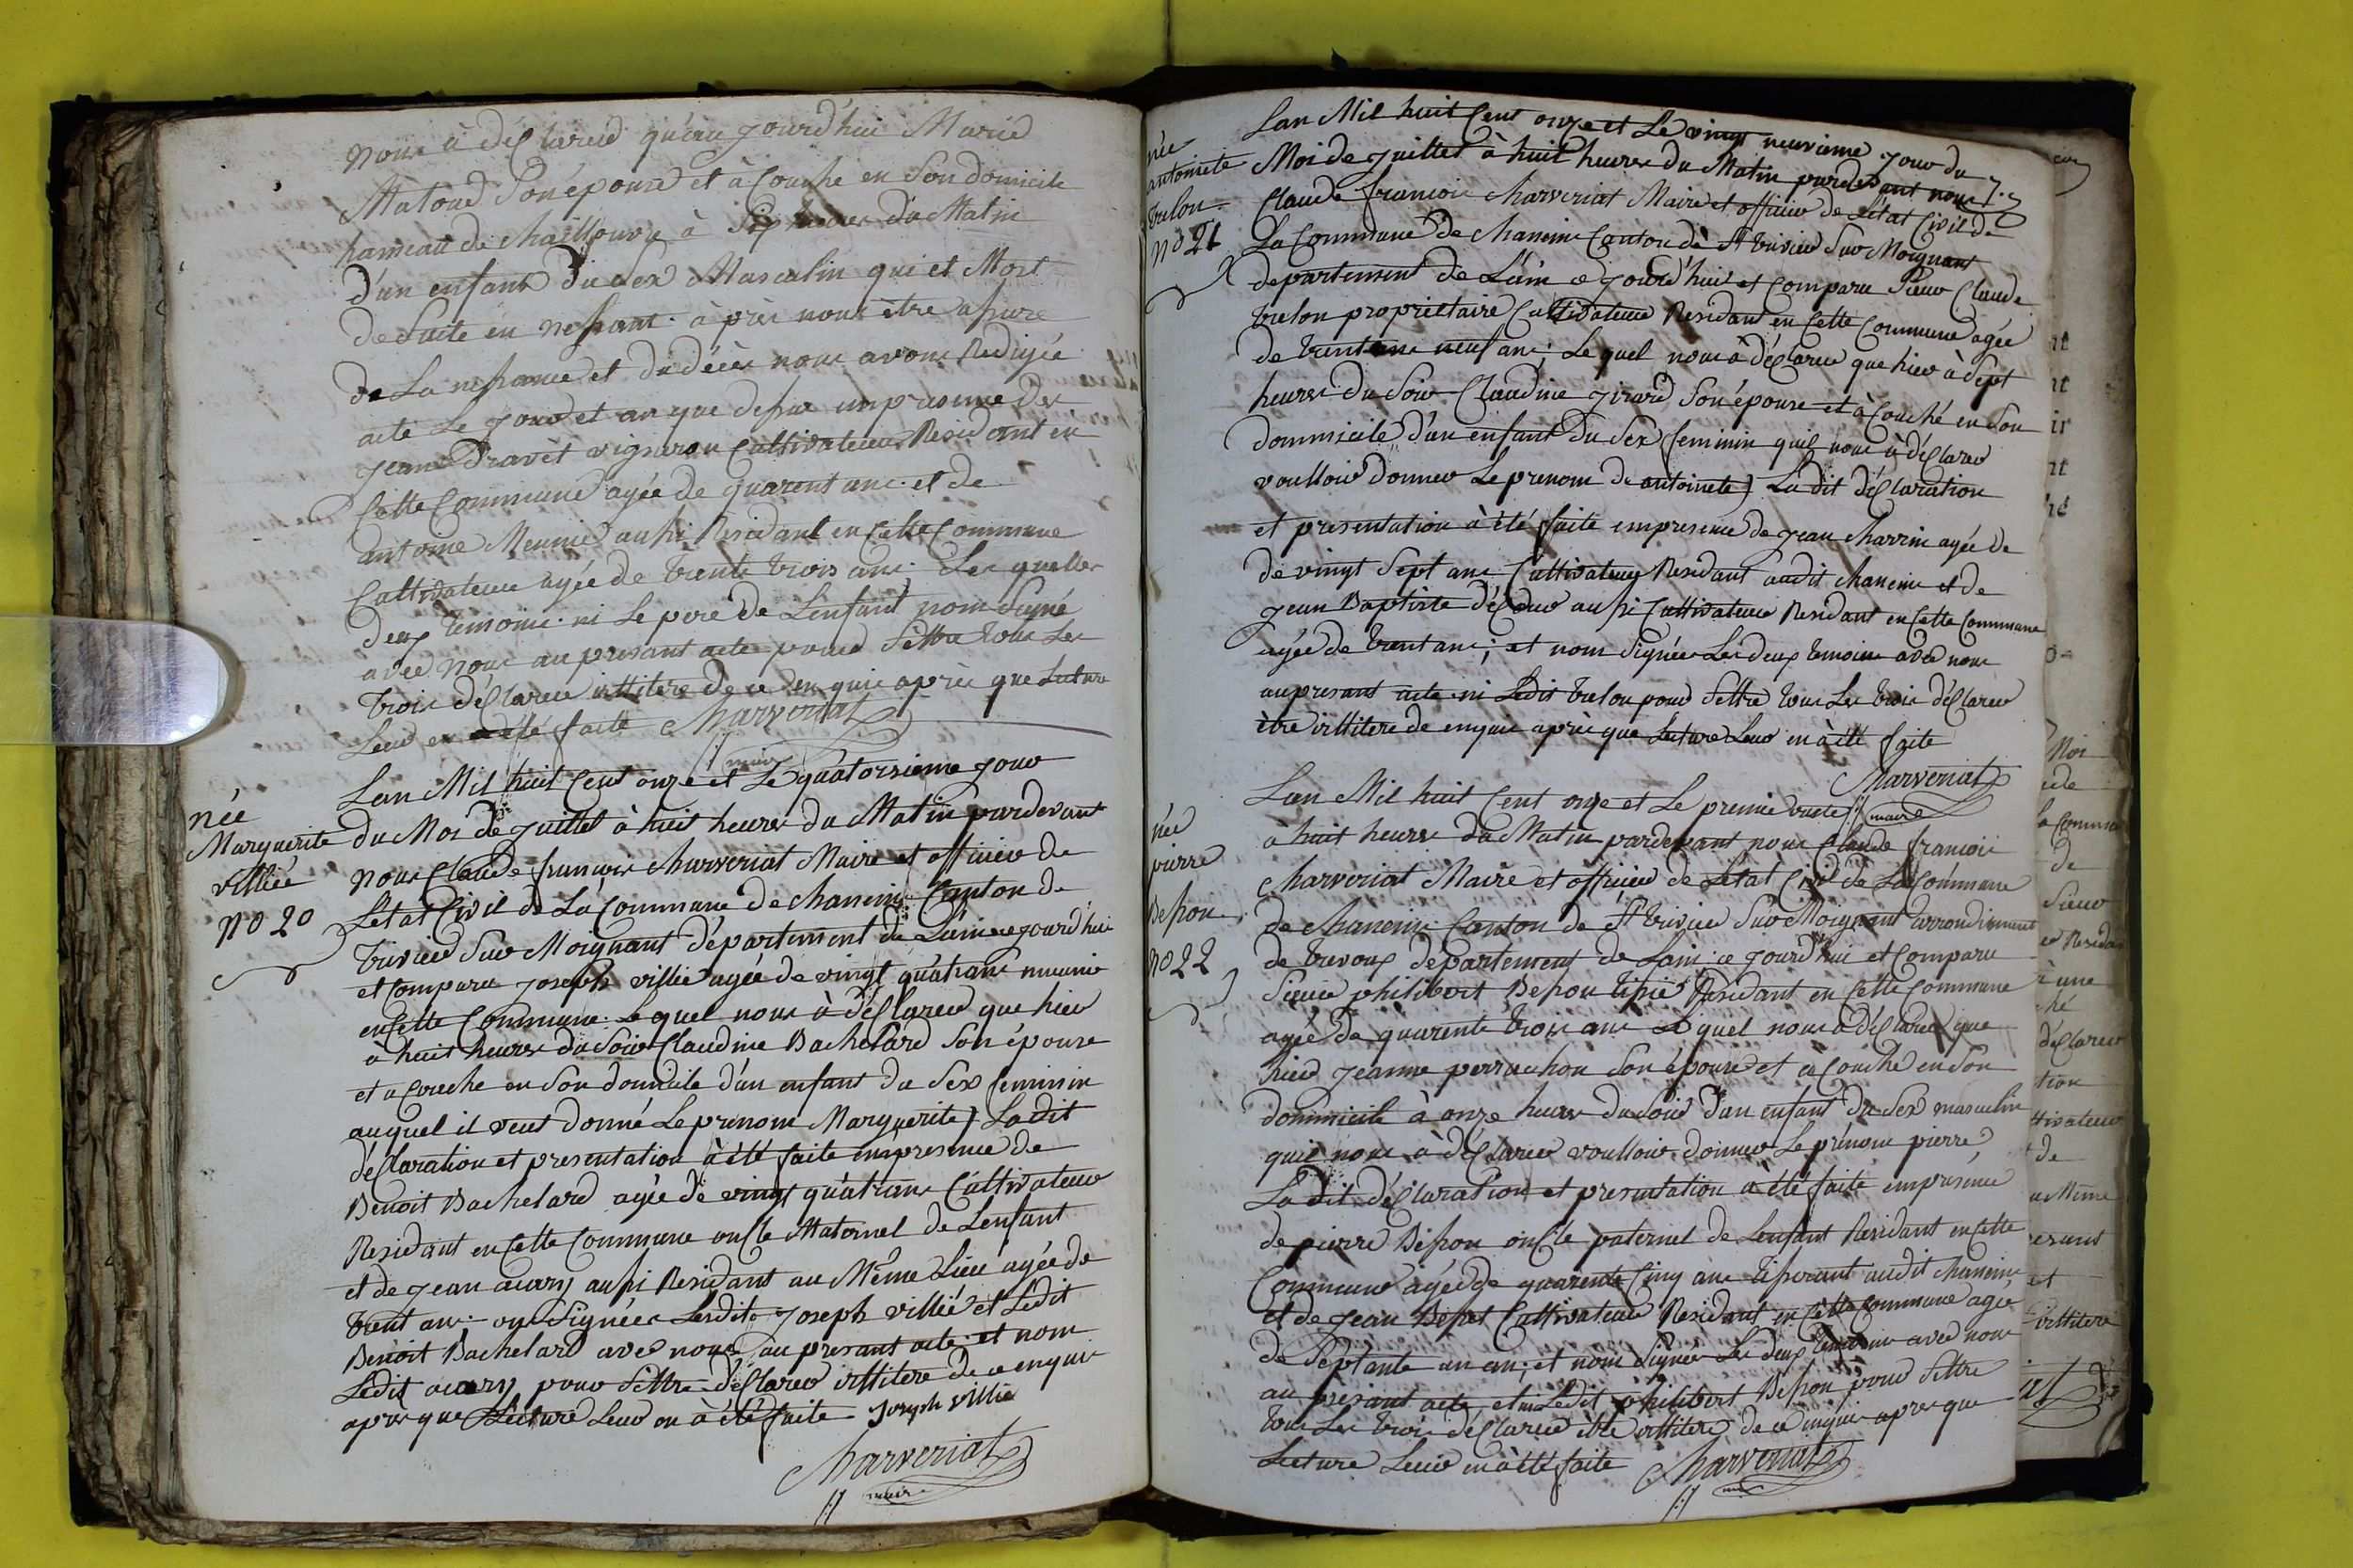 nous à déclaréd qu'au jourd'hui Marie
Matoud Son épouse et à Couche en Son domicile
hameau de chaillouvre à Six heures du Matin
d'un enfant du Sex Masculin qui et Mort
de Suite en nessant. à près nous être assure
de La nessance et du décès nous avons Redigée
acte Le jour et an que dessue empresance de
jean Pravêt vigneron Cultivateur Residant en
Cette Commune agée de quarent anc. et de
antoine Meunié aussi Residant en Cette Commune
Cultivateur agée de trente trois anc. Les quelles
deux temoins ni Le pere de L'enfant nom Signé
avec nous au presant acte pour Settre tous Les
trois déclareu illitere de ce en quis après que Lecture
Leur en a été faite Charveriat
maire
Lan Mil huit Cent onze et Le quatorsieme jour
née
Marguerite
villiée
no 20
du Mois de juillet à huit heures du Matin pardevant
nous Claude francois Charveriat Maire et officiér de
L'état Civil de La Commune de chaneins Canton de
trivier Sur Moignant département de L'ain ce jourd'hui
et comparu joseph villié agée de vingt quatranc meunié
en Cette Commune. Le quel nous à déclareu que hier
à huit heures du Soir Claudine Bachelard Son épouse
et a Couche en Son domicile d'un enfant du Sex feminin
auquel il veut donné Le prenom Marguerite) Ladit
déclaration et presentation à été faite empresence de
Benoit Bachelard agée de vingt quatranc Cultivateur
Residant en Cette Commune oncle Maternel de Lenfant
et de jean acary aussi Residant au Même Lieu agée de
trent anc. on Signées Lesdits joseph villié et Ledit
Benoit Bachelard avec nous au presant acte et nom
Ledit acary pour Settre déclareu illitere de ce enquis
après que Lecture Leur en à été faite Joseph villié
Charveriat
maire
née
antoinete
trelon
no 21
Lan Mil huit Cent onze et Le vingt neuvieme jour du
Mois de juillet à huit heures du Matin pardevant nous
Claude francois Charveriat Maire et officier de L'état Civil de
La Commune de chaneins Canton de St trivier Sur Moignant
departement de L'ain ce jourd'hui et comparu Sieur Claude
trelon propriétaire Cultivateur Residant en Cette Commune agée
de trent neuf anc; Le quel nous à déclareu que hier à Sept
heures du Soir Claudine girard Son épouse et à Couché en Son
dommicile d'un enfant du Sex feminin quil nous à déclareu
voulloir donner Le prenom de antoinete) La dit déclaration
et presentation à été faite empresence de jean charvin agée de
de vingt Sept anc Cultivateur Residant audit chaneins et de
jean Baptiste aussi Cultivateur Residant en Cette Commune
agée de trent anc; et nom Signées Les deux temoins avec nous
au presant acte ni Ledit trelon pour Settre tous Les trois déclareu
être illitere de enquis après que Lecture Leur en à été faite
Charveriat
maire
née
pierre
Besson
no 22
Lan Mil huit Cent onze et Le premié
à huit heures du Matin pardevant nous Claude francois
Charveriat Maire et officier de L'état Civil de La Commune
de chaneins Canton de St trivier Sur Moignant arrondissement
de trevoux departement de Lain ce jourd'hui et comparu
Sieur philibert Besson tissié Residant en Cette Commune
agée de quarente trois anc Le quel nous à déclareu que
hier jeanne perrachon Son épouse et à Couché en Son
dommicile à onze heures du Soir d'un enfant du Sex masculin
quil nous à déclareu voulloir donner Le prénom pierre,
La dit déclaration et presentation à été faite empresence
de pierre Besson oncle paternel de Lenfant Residant en Cette
Commune agée de quarente Cinq anc tisserant audit chaneins
et de jean Cultivateur Residant en Cette Commune agée
de Septante un an; et nom Signée Les deux temoins avec nous
au presant acte et ni Ledit philibert Besson pour Settre
tous Les trois déclareu être illitere de ce enquis après que
Lecture Leur en à été faite Charveriat